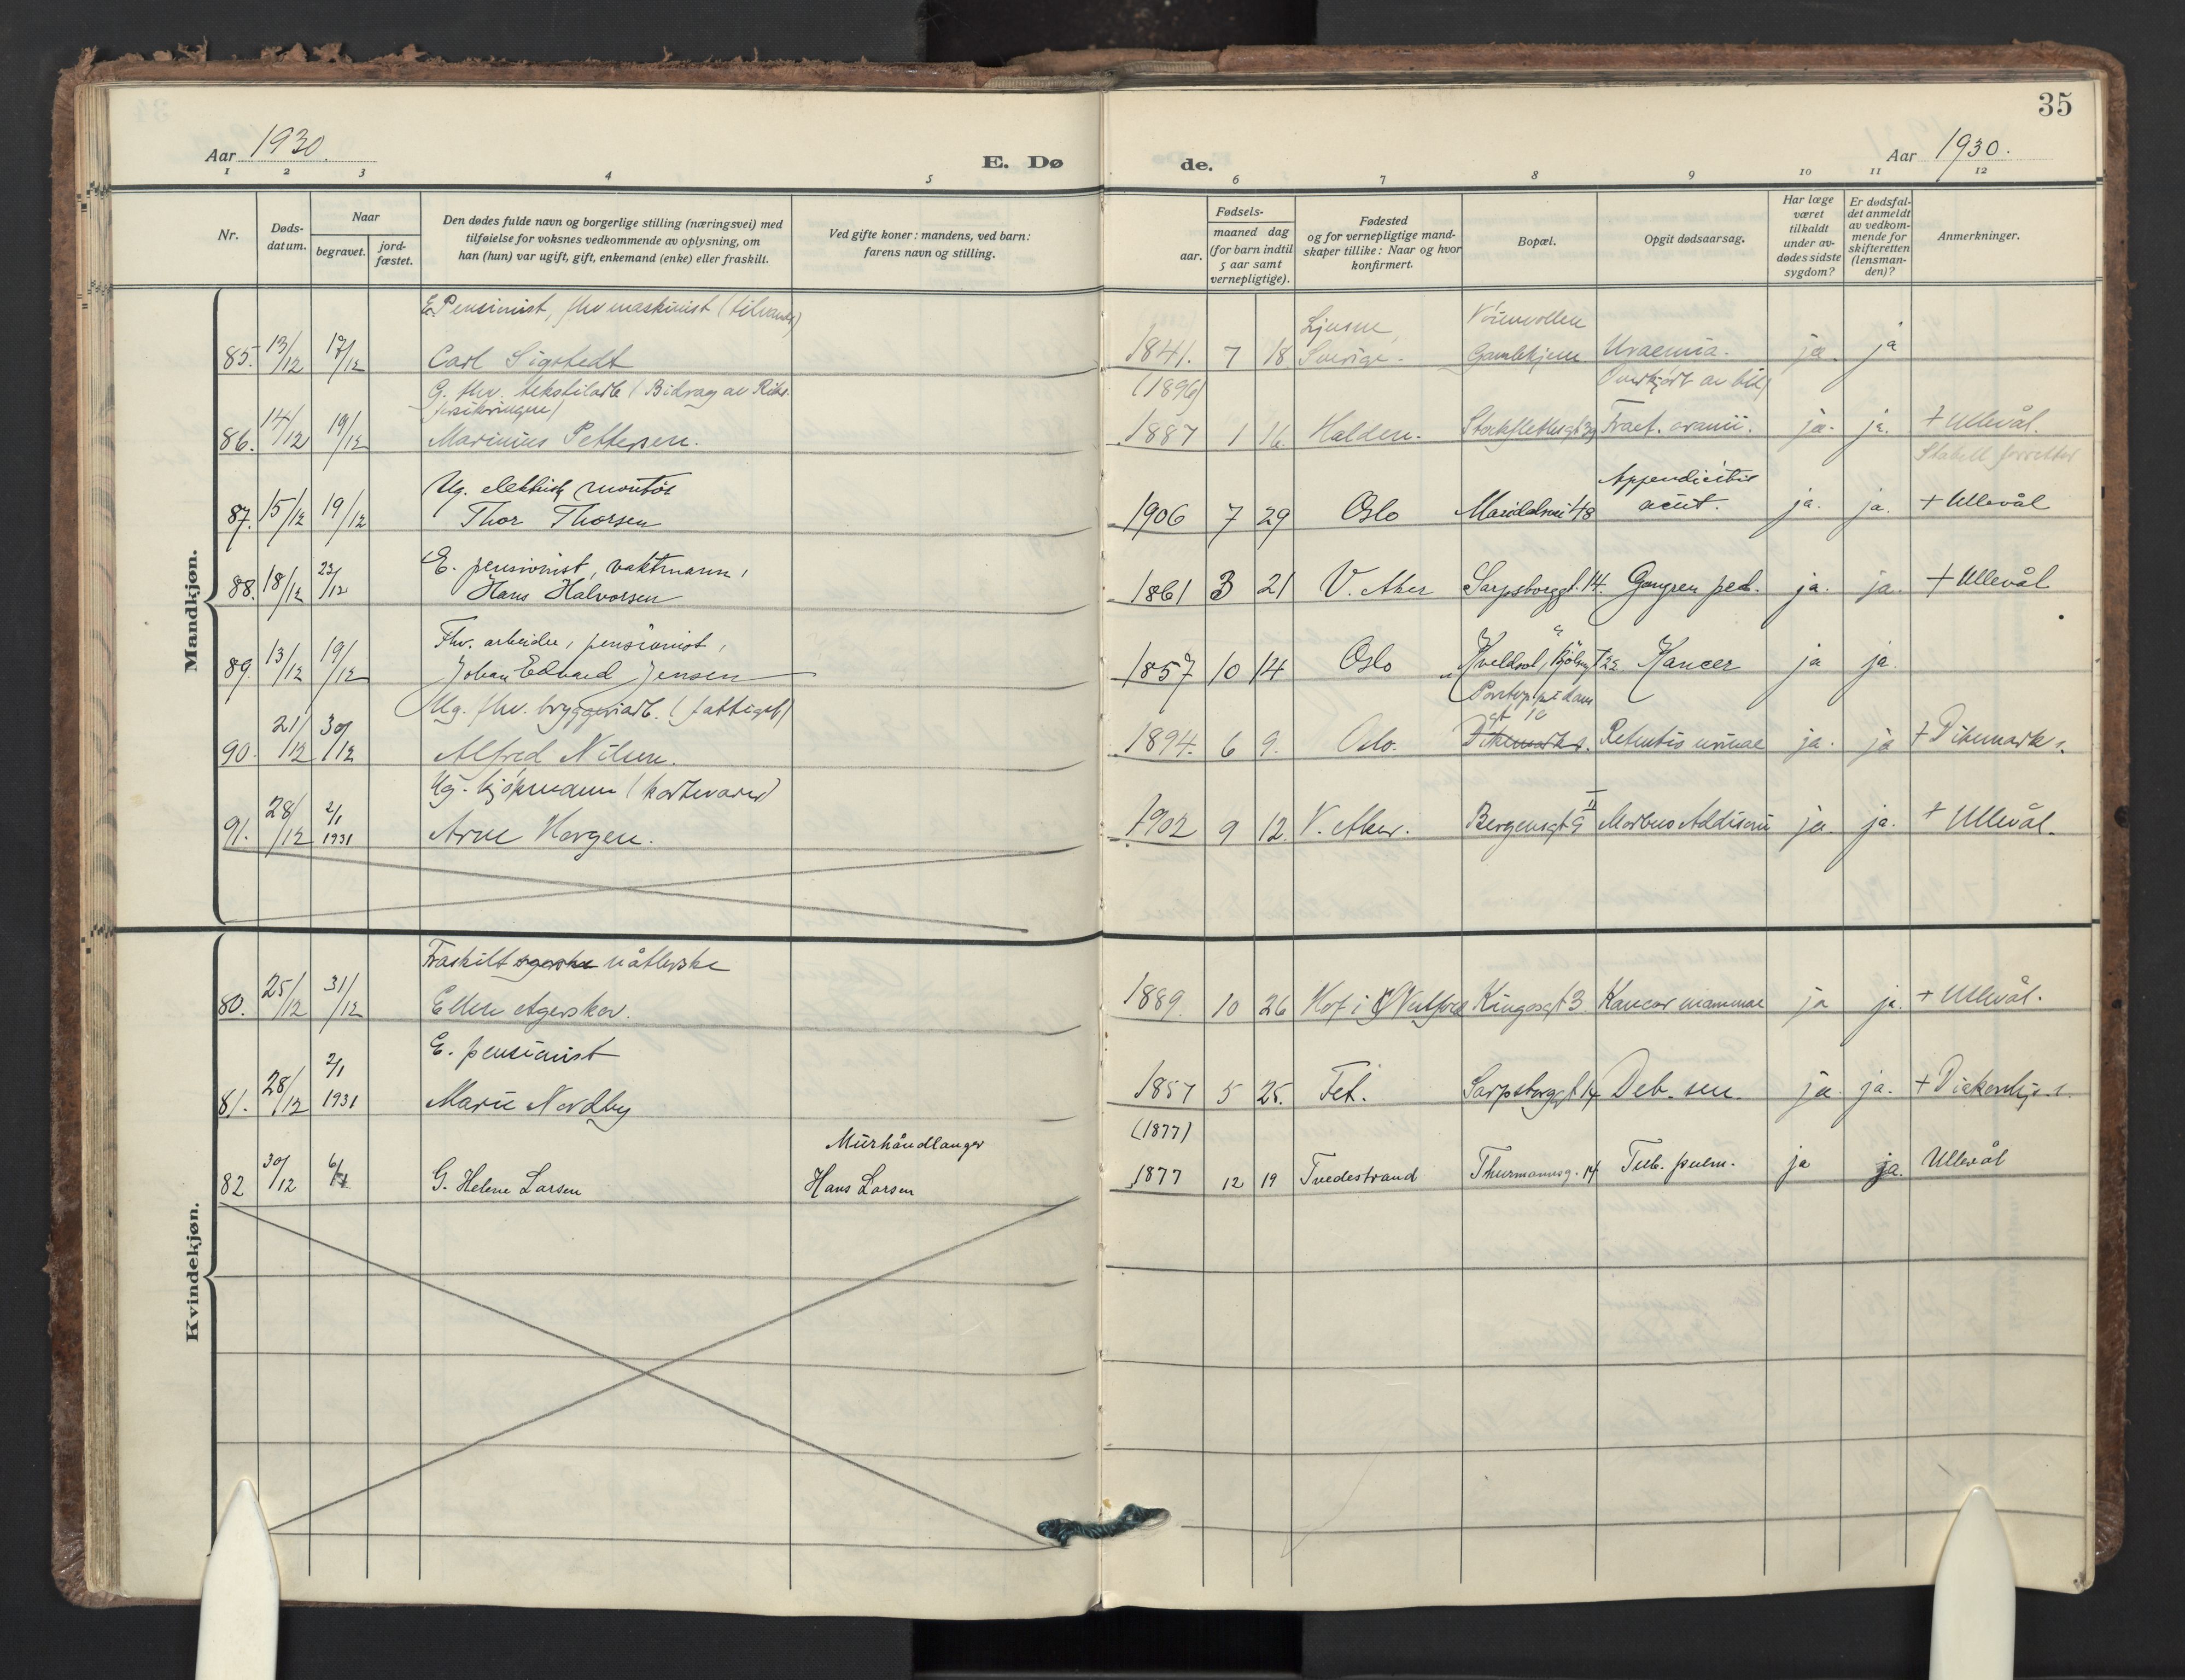 35
Aar 1930.
E. Dø
de.
Aar 1930.
1 2 3 4 5 6 7 8 9 10 11 12
Nr.
Døds-
datum.
Naar
begravet.
jord-
fæstet.
Den dødes fulde navn og borgerlige stilling (næringsvei) med
tilføielse for voksnes vedkommende av oplysning, om
han (hun) var ugift, gift, enkemand (enke) eller fraskilt.
Ved gifte koner: mandens, ved barn:
farens navn og stilling.
Fødsels-
aar.
maaned dag
(for barn indtil
5 aar samt
vernepligtige).
Fødested
og for vernepligtige mand-
skaper tillike: Naar og hvor
konfirmert.
Bopæl.
Opgit dødsaarsag.
Har læge
været
tilkaldt
under av-
dødes sidste
sygdom?
Er dødsfal-
det anmeldt
av vedkom-
mende for
skifteretten
(lensman-
den)?
Anmerkninger.
Mandkjøn.
E. Pensionist, fhv maskinist
Sverige. Uraemia. ja. ja
85. 13/12 17/12 Carl Sigstedt 1841. 7 18
G. fhv. tekstilarb. (Bidrag av Riks
forsikringen) (1896) Overkjørt av bil
86. 14/12 19/12 Marinius Pettersen. 1887 1 16 Halden. Stockflethsgt 39 Fract. cranii. ja. ja. + Ullevål.
Ug. elektrisk montør Appendicitis
87. 15/12 19/12 Thor Thorsen 1906 7 29 Oslo Maridalsvei 48 acut. ja. ja. + Ullevål
E. pensionist, vaktmann,
88. 18/12 23/12 Hans Halvorsen 1861 3 21 V. Aker Sarpsborggt. 14. Gangren ped. ja. ja. + Ullevål
Fhv. arbeider, pensionist,
89. 13/12 19/12 Johan Edvard Jensen 1857 10 14 Oslo Kancer ja ja.
Ug. fhv. bryggeriarb. (fattigeb)
90. 21/12 30/12 Alfred Nilsen. 1894. 6 9. Oslo. Dikemark s. Retentio urinae ja. ja + Dikemark s.
Ug. kjøpmann (kortevarer)
91. 28/12 2/1 1931 Arne Horgen. 1902 9 12. V. Aker. Bergensgt 9 II Morbus Addisoni ja. ja. + Ullevål.
Kvindekjøn.
Fraskilt nåtlerske
80. 25/12 31/12 Ellen Agerskov. 1889. 10 26 Hof i Vestfold Kingosgt 3. Kancer mammae ja ja. + Ullevål.
E. pensionist
81. 28/12 2/1 1931 Marie Nordby 1857 5 25. Fet. Sarpsborggt 14 Deb. sen. ja ja. + Diakonhj. s.
Murhåndlanger (1877)
82 30/12 6/1 G. Helene Larsen Hans Larsen 1877 12 19 Tvedestrand Thurmannsg. 14 Tub. pulm. ja ja. Ullevål